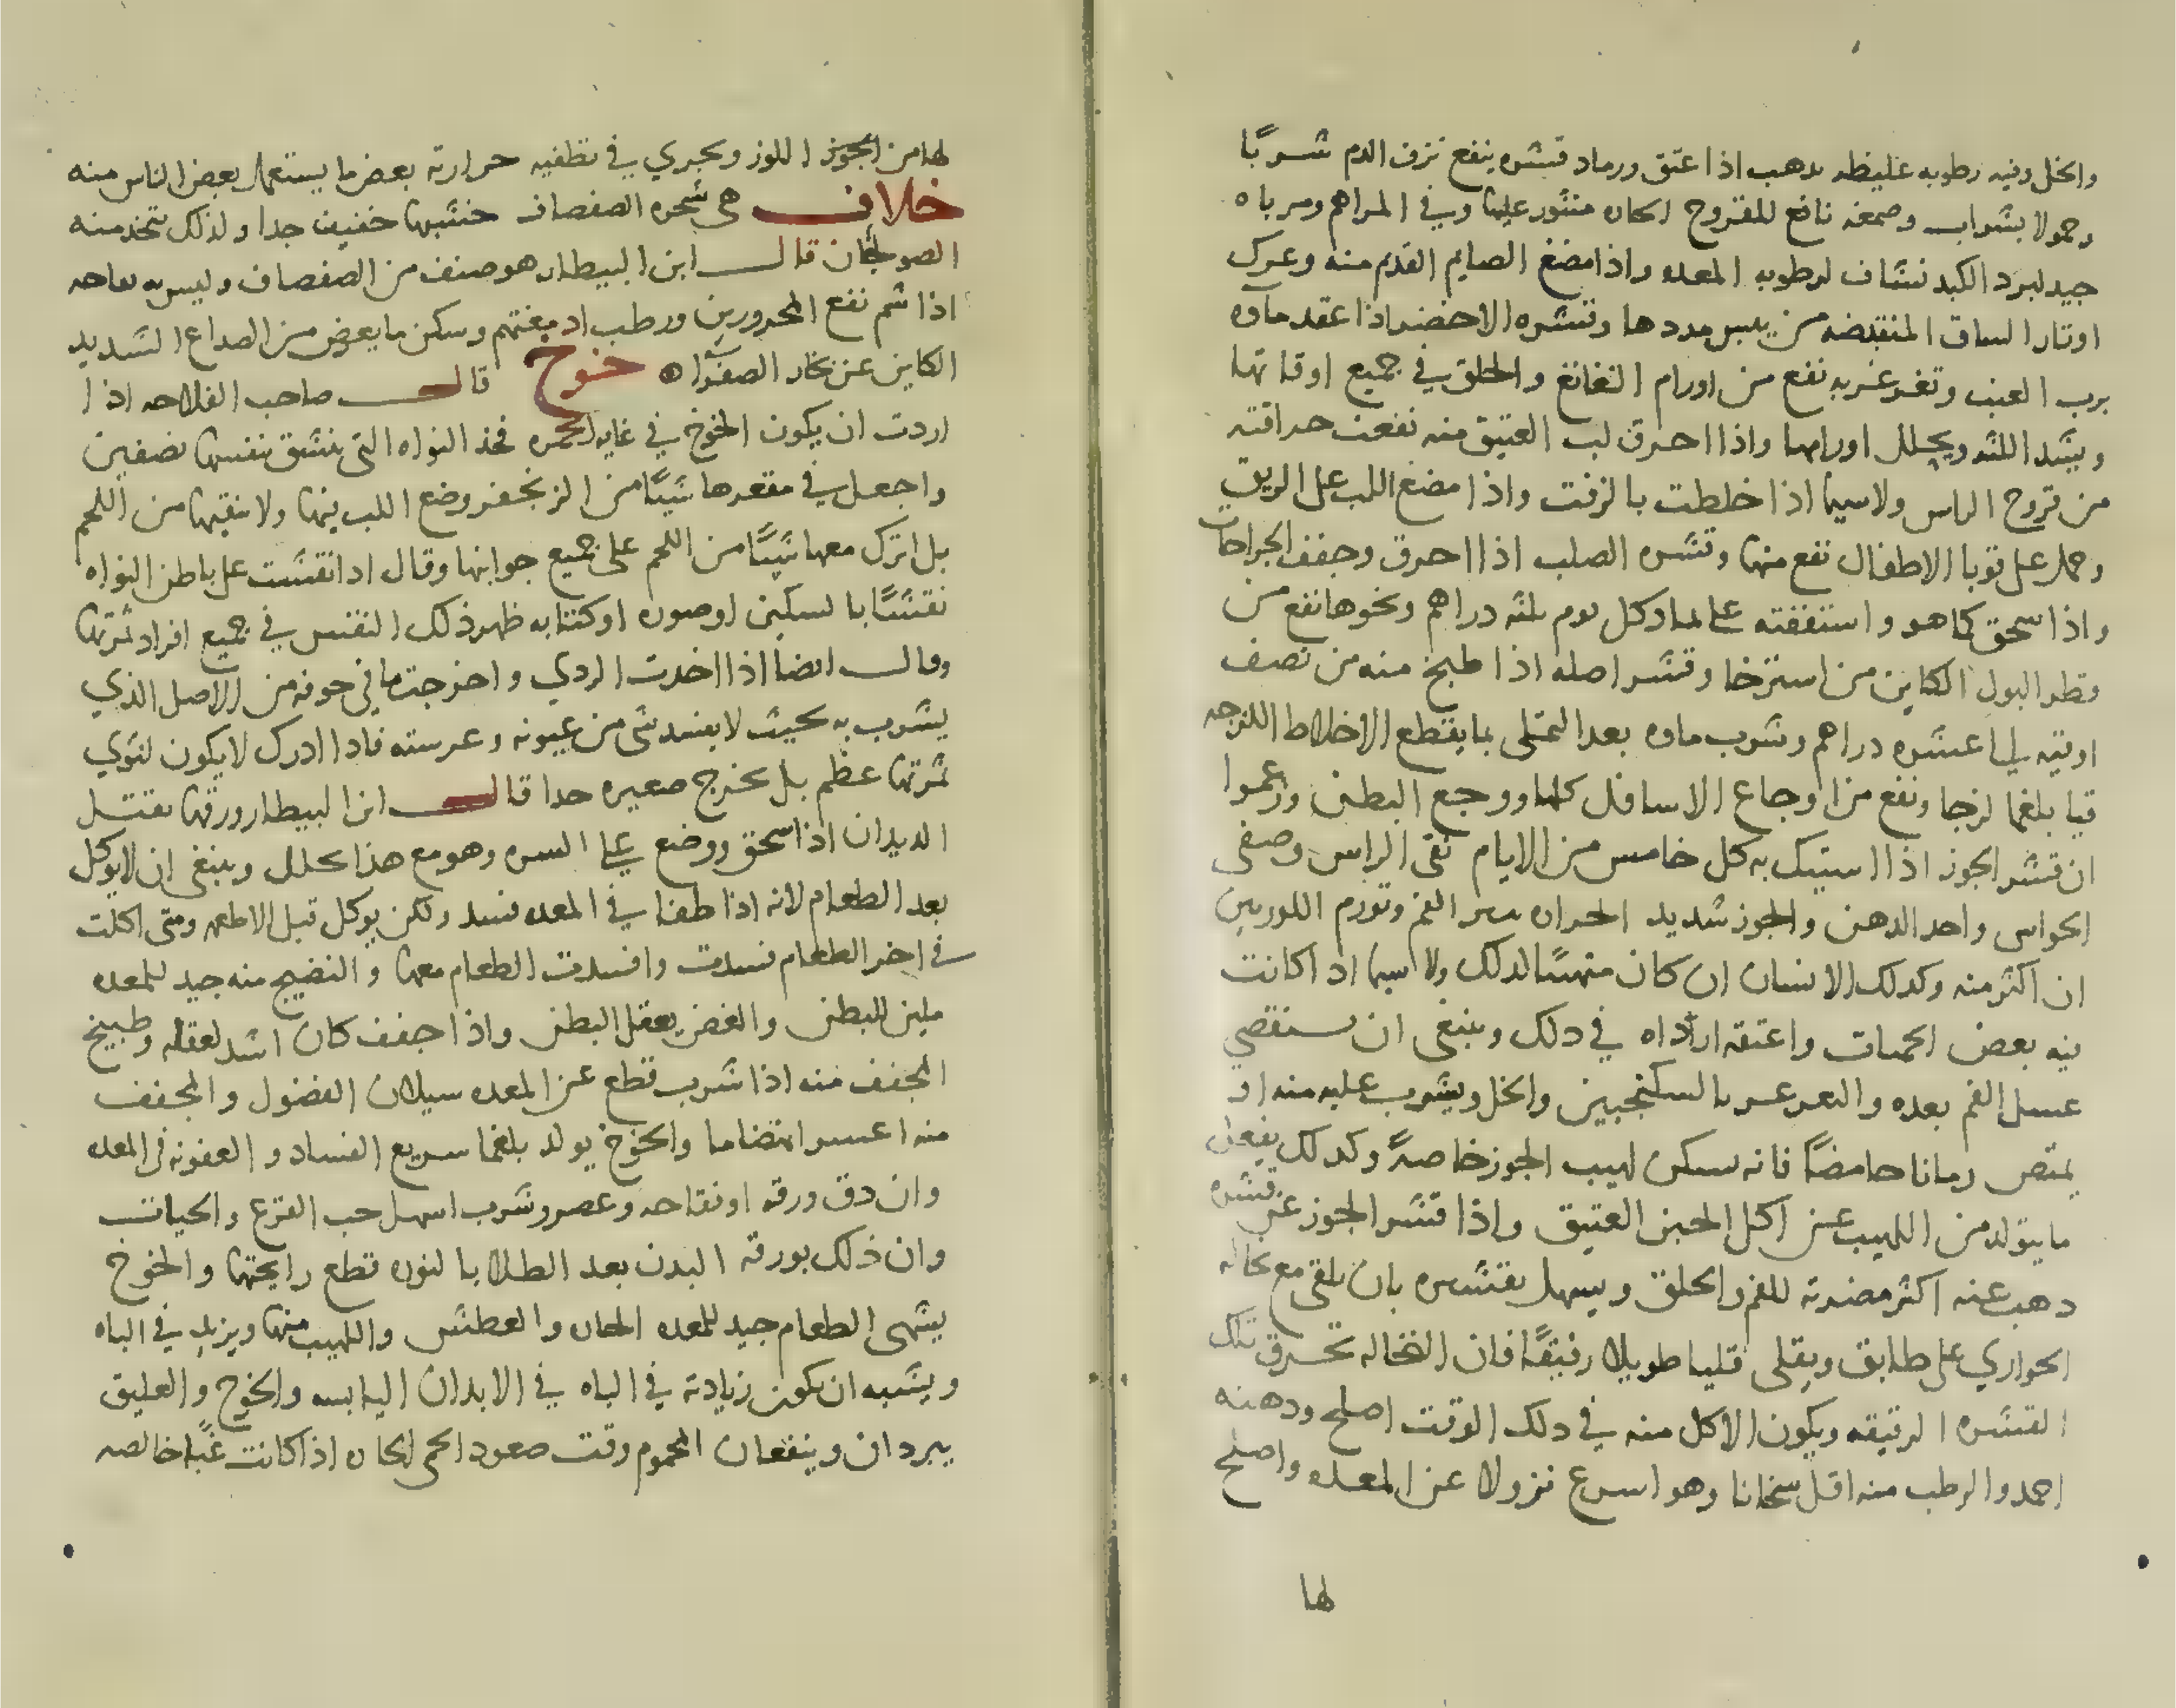 والخل وفيه رطوبه غليظه يدهب اذا عتق ورماد قشره ينفع نزف الدم شربًا
وحمولا بشراب وصمغه نافع للقروح الحاره منثور عليها وفي المراهم ومرباه
جيد لبرد الكبد نشاف لرطوبه المعده واذا مضغ الصايم القديم منه وعرك
اوتار الساق المنقبضه من يبس مددها وقشره الاخضر اذا عقد ماوه
برب العنب وتغرغر به نفع من اورام النغانغ والحلق في جميع اوقاتها
ويشد اللثه ويحلل اورامها واذا احرق لب العتيق منه نفعت حراقته
من قروح الراس ولاسيما اذا خلطت بالزفت واذا مضغ اللب على الريق
وحمل على قوبا الاطفال نفع منها وقشره الصلب اذا احرق وجفف الجراحات
واذا سحق كما هو واستففته على الماء كل يوم ثلثه دراهم ونحوها نفع من
قطر البول الكاين من استرخا وقشر اصله اذا طبخ منه من نصف
اوقيه الى عشره دراهم وشرب ماوه بعد التملى بما يقطع الاخلاط اللزجه
قيا بلغما لزجا ونفع من اوجاع الاسافل كلها ووجع البطن وزعموا
ان قشر الجوز اذا استيك به كل خامس من الايام نقى الراس وصفى
الحواس واحد الدهن والجوز شديد الحراره يبثر الفم وتورم اللوزتين
ان اكثر منه وكدلك الانسان ان كان متهيئا لدلك ولا سيما اذا كانت
فيه بعض الحميات واعتقه ارداه في دلك وينبغي ان يستقصي
غسل الفم بعده والتغرغر بالسكنجبين والخل ويشرب عليه منه او
يمتص رمانا حامضًا فانه يسكن لهيب الجوز خاصةً وكدلك يفعل
ما يتولد من اللهيب عن اكل الجبن العتيق واذا قشر الجوز عن قشره
دهب عنه اكثر مضرته للفم والحلق ويسهل تقشيره بان يلقى مع نخاله
الحواري على طابق ويقلى قليا طويلا رفيقًا فان النخاله تحرق تلك
القشره الرقيقه ويكون الاكل منه في دلك الوقت اصلح ودهنه
احمد والرطب منه اقل سخانا وهو اسرع نزولا عن المعده واصلح
لها
لها من الجوز اللوز ويجري في تطفيه حرارته بعض ما يستعمل بعض الناس منه
خلاف هى شجره الصفصاف خشبها خفيف جدا ولذلك تتخذ منه
الصولجان قال ابن البيطار هو صنف من الصفصاف وليس به تفاحه
اذا شم نفع المحرورين ورطب ادمغتهم وسكن ما يعرض من الصداع الشديد
الكاين عن بخار الصفرا خوخ قال صاحب الفلاحه اذا
اردت ان يكون الخوخ في غايه الحمره فخذ النواه التى تنشق بنفسها نصفين
واجعل في مقعرها شيًّا من الزنجفر وضع اللب فيها ولا تنقيها من اللحم
بل اترك معها شيًّا من اللحم على جميع جوانبها وقال اذا نقشت على باطن النواه
نقشًا بالسكين او صوره او كتابه ظهر ذلك النقش في جميع افراد ثمرتها
وقال ايضا اذا اخدت الردي واخرجت ما في جوفه من الاصل الذي
يشرب به بحيث لا يفسد شى من عيونه وغرسته فاذا ادرك لا يكون لنوي
ثمرتها عظم بل تخرج صغيره جدا قال ابن البيطار ورقها يقتل
الديدان اذا سحق ووضع على السره وهو مع هذا يحلل وينبغي ان لا يوكل
بعد الطعام لانه اذا طفا في المعده فسد ولكن يوكل قبل الاطعمه ومتى اكلت
في اخر الطعام فسدت وافسدت الطعام معها والنضيج منه جيد للمعده
ملين للبطن والغض يعقل البطن واذا جفف كان اشد لعقله وطبيخ
المجفف منه اذا شرب قطع عن المعده سيلان الفضول والمجفف
منه اعسر انهضاما والخوخ يولد بلغما سريع الفساد والعفونه في المعده
وان دق ورقه او فقاحه وعصر وشرب اسهل حب القرع والحيات
وان ذلك بورقه البدن بعد الطلا بالنوره قطع رايحتها والخوخ
يشهى الطعام جيد للمعده الحاره والعطش واللهيب منها ويزيد في الباه
ويشبه ان يكون زيادته في الباه في الابدان اليابسه والخوخ والعليق
يبردان وينفعان المحموم وقت صعود الحمى الحاره اذا كانت غبًا خالصه